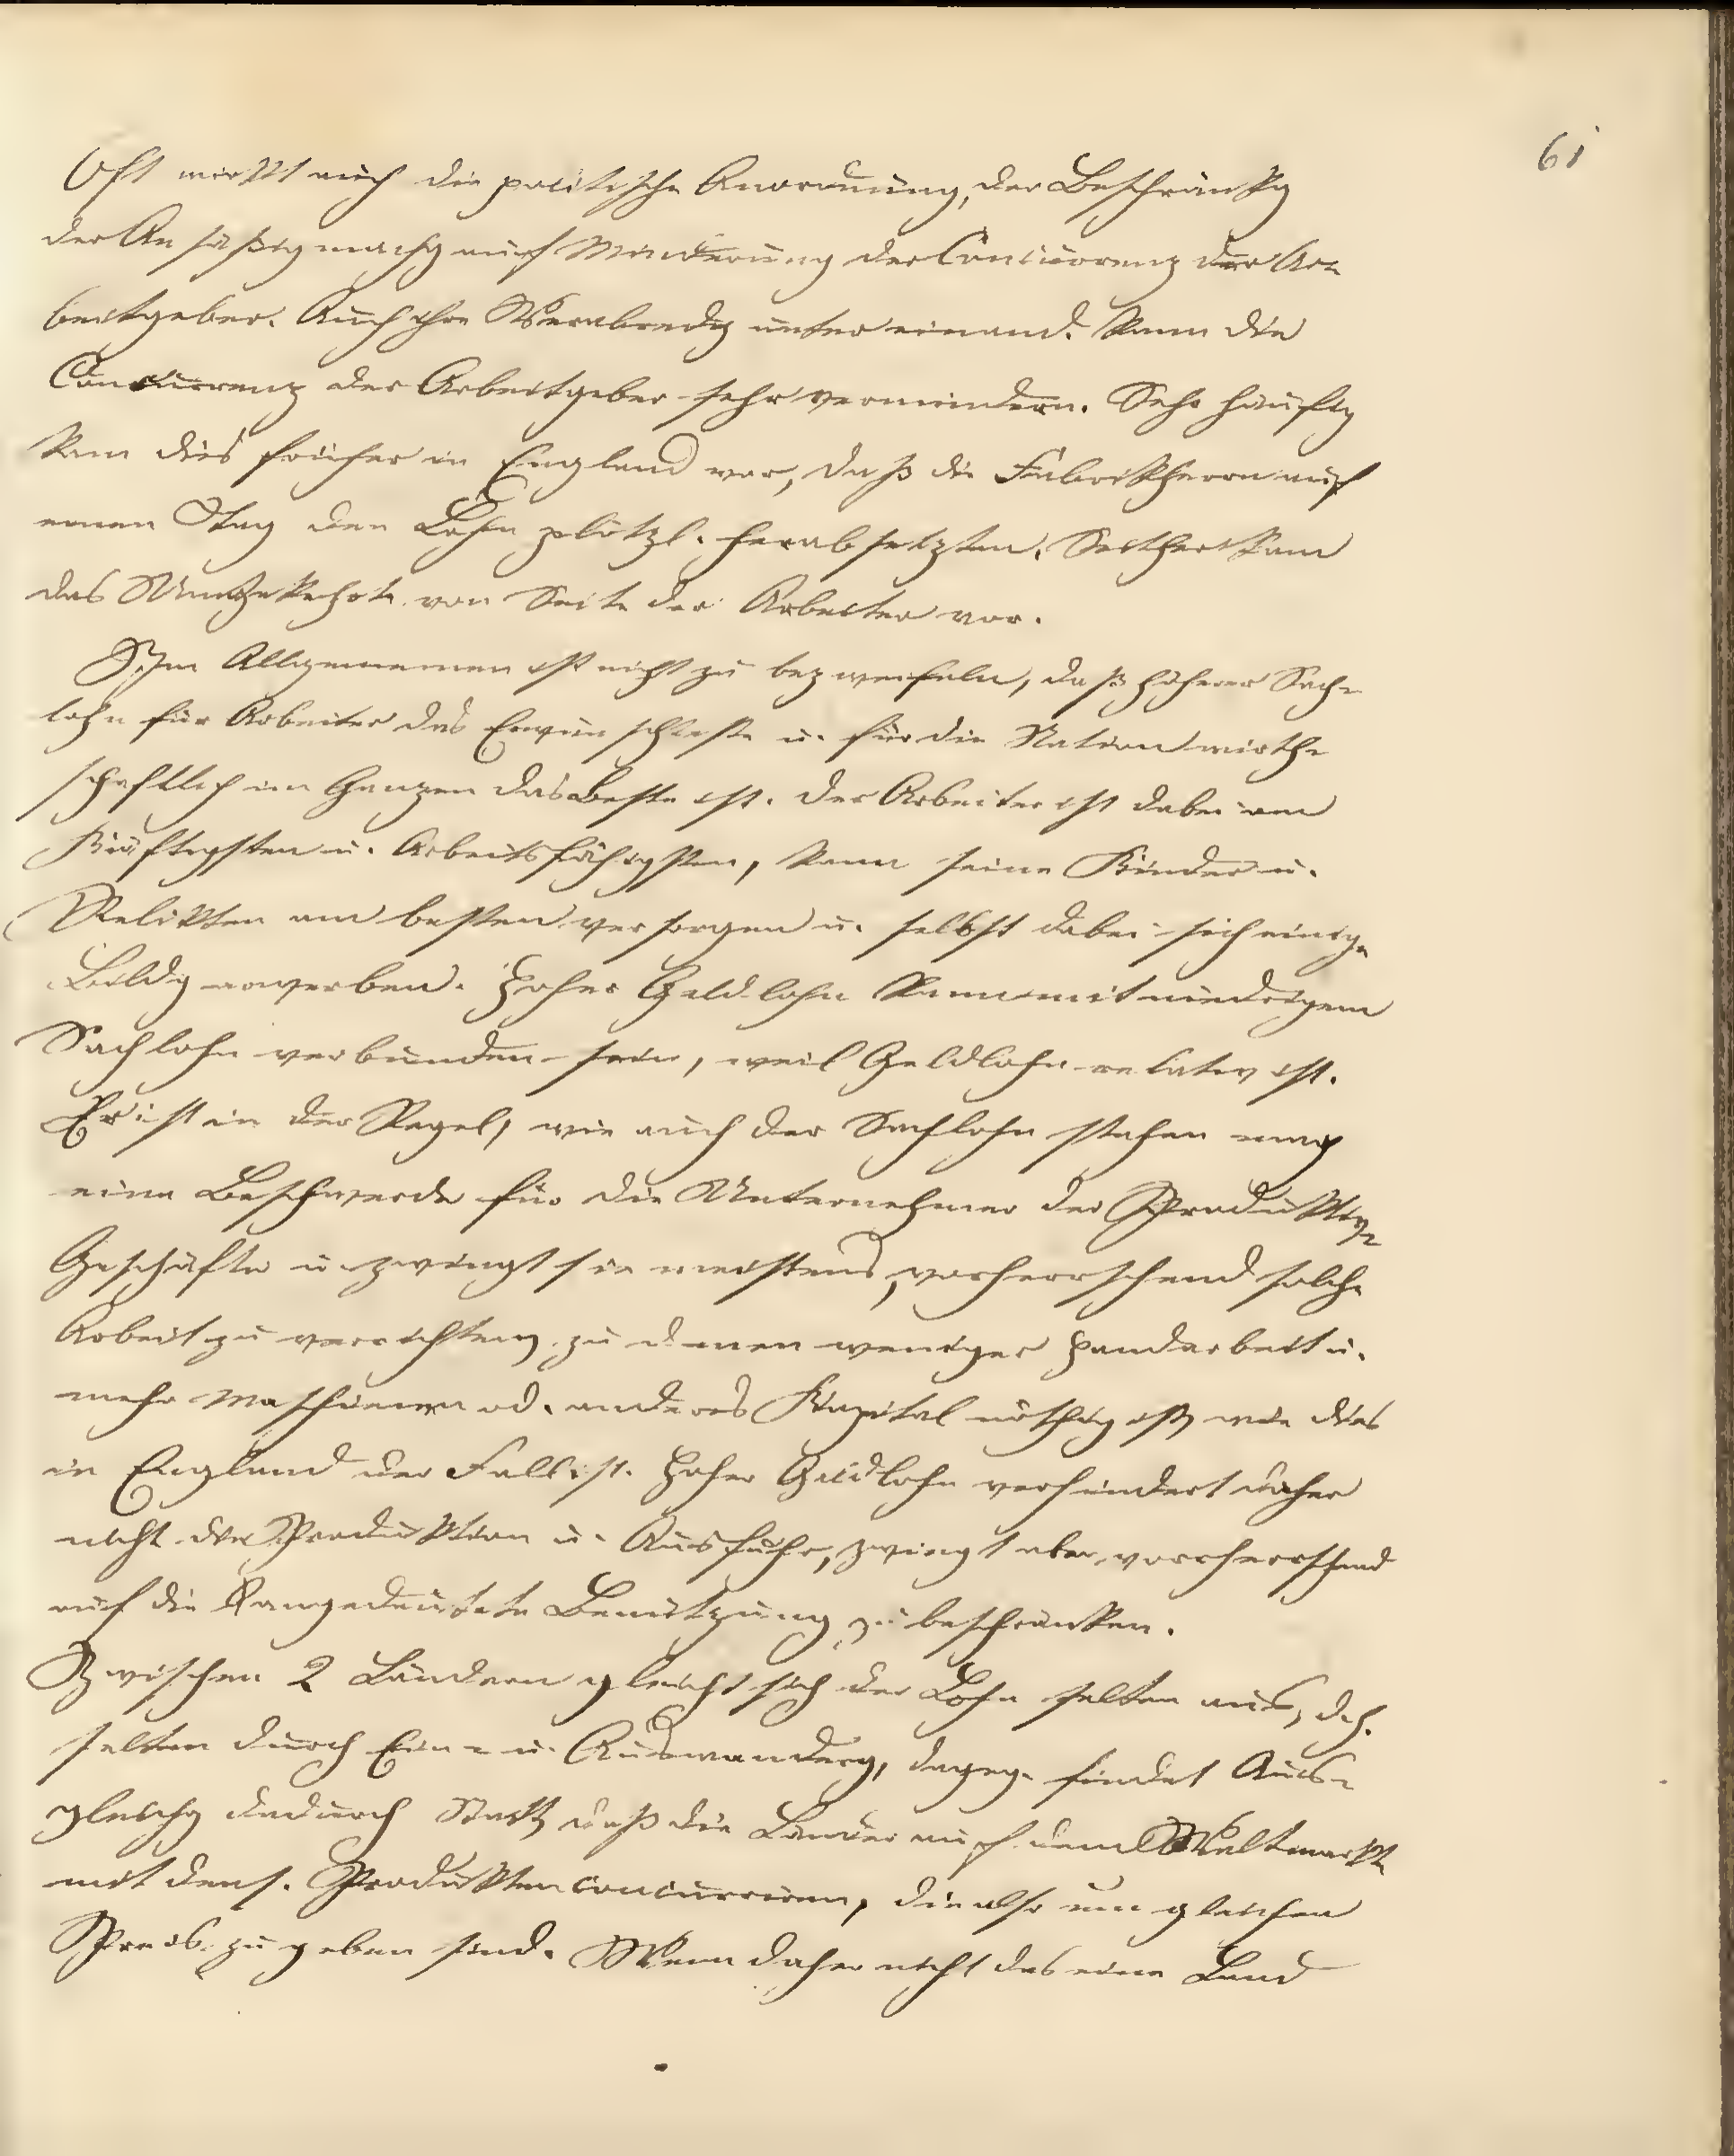 61
Oft wirkt auch die politische Anordnung, der Beschränkg
der Ansäßigmachg auf Minderung der Concurrenz der Ar-
beitgeber. Auch ihre Verabredg unter einand. kann die
Concurrenz der Arbeitgeber sehr vermindern. Sehr häufig
kam dies früher in England vor, daß die Fabrikherrn auf
einen Tag den Lohn plötzl. herabsetzten. Seither kam
das Umgekehrte von Seite der Arbeiter vor.
Im Allgemeinen ist nicht zu bezweifeln, daß höherer Sach-
lohn für Arbeiter das Erwünschteste u. für die Nation wirth-
schaftlich im Ganzen das Beste ist. Der Arbeiter ist dabei am
Kräftigsten u. Arbeitsfähigsten, kann seine Kinder u.
Relikten am besten versorgen u. selbst dabei sich einige
Bildg erwerben. Hoher Geldlohn kann mit niedrigem
Sachlohn verbunden sein, weil Geldlohn relativ ist.
Er ist in der Regel, wie auch der Sachlohn stehen mag
eine Beschwerde für die Unternehmer der Produktiv-
Geschäfte u. zwingt sie meistens, vorherrschend solche
Arbeit zu verrichten, zu denen weniger Handarbeit u.
mehr Maschinen od. anderes Kapital nöthig ist, wie dies
in England der Fall ist. Hoher Geldlohn verhindert daher
nicht die Produktion u. Ausfuhr, zwingt aber, vorherrschend
auf die angedeutete Benützung zu beschränken.
Zwischen 2 Ländern gleicht sich der Lohn selten aus, d.h.
selten durch Ein- u. Auswanderg, dageg. findet Aus-
gleichg dadurch Statt, daß die Länder auf dem Weltmarkte
mit dens. Produkten concurriren, die also um gleichen
Preis zu geben sind. Wenn daher nicht das eine Land